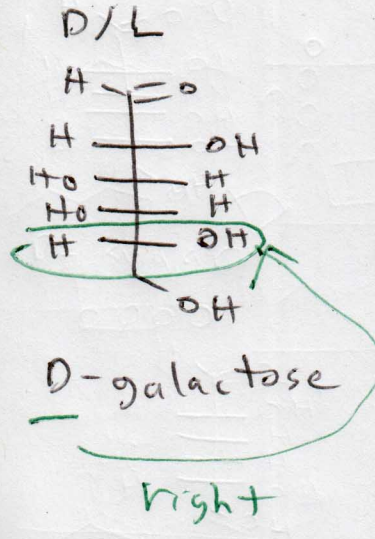 D/L
H O
H OH
Ho H
Ho H
H OH
OH
D-galactose
right